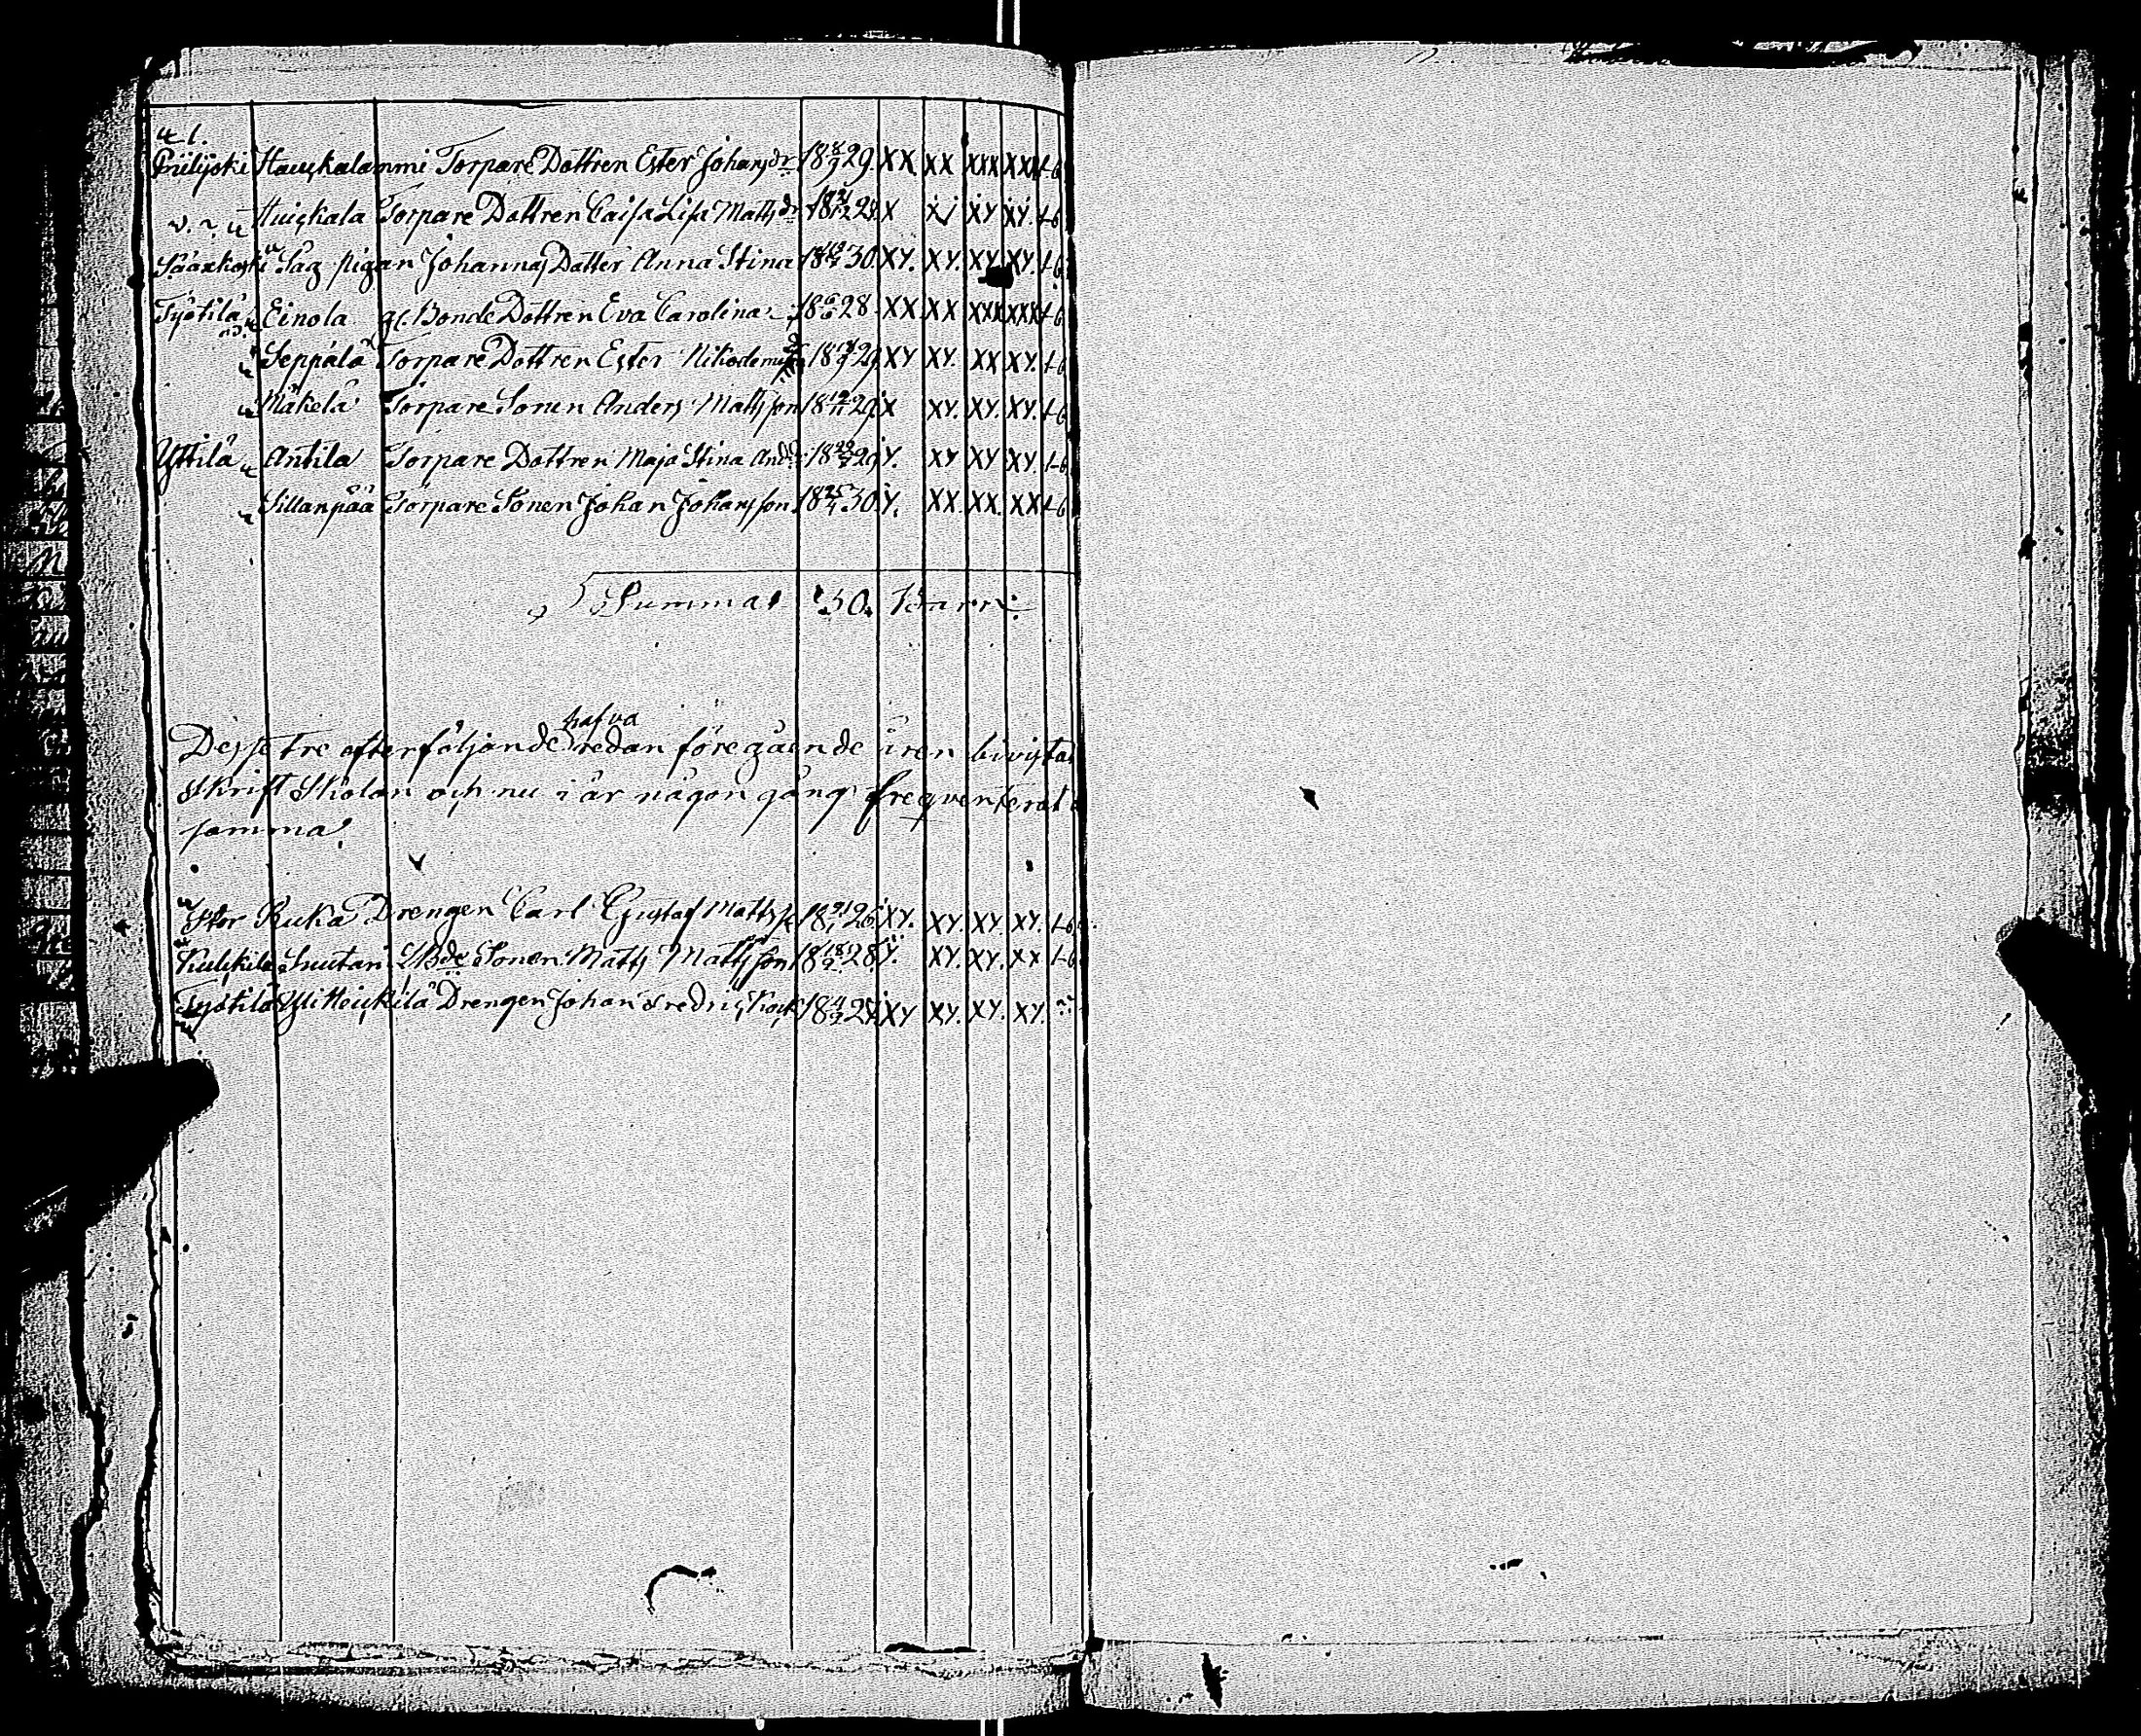 u l.
Piilijoki Haukalammi Torpare Dottren Ester Johansdr 18 8/9 29. XX. XX XXX XXX +6
Huiskala Torpare Dottren Caisa Lisa Mattsdr 18 X XJ XY XY. +6
Sääxkoski Såg pigan Johannas Dotter Anna Stina 18 30. XY. XY. XY XY. +6
Työtilä Einola gl. Bonde Dottren Eva Carolina 18 28 XX XX XXX XXX +6
Seppälä Torpare Dottren Ester Nikodemus 18 29. XY XY. XX XY. +6
Mäkelä Torpare Sonen Anders Mattsson 18 29. X XY. XY. XY. +6
Yttilä Antila Torpare Dottren Maja Stina And. 18 29 Y. XY XY XY +6
Sillanpää Torpare Sonen Johan Johansson 18 25/4 30. Y. XX. XX. XX +6
Summa 50. Barn.
Desse tre efterföljande hafva redan föregående åren bivistat
Skrift Skolan och nu i år någon gång freqventerat
samma.
Stor Ruka Drengen Carl Gustaf Mattss 18 26 XY. XY. XY. XY. +6
Kulkila Snutari Sonen Matts Mattsson 18 28. Y. XY. XY. XX +6
Työtilä Ylitteukilä Drengen Johan Fredric Kock 18 XY XY. XY. XY.